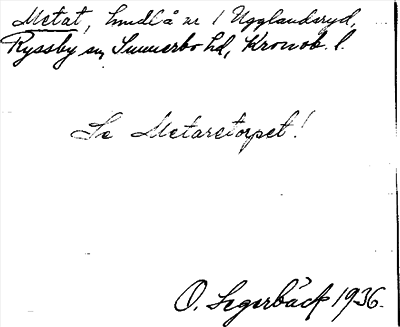 Metat, hmdl å nr 1 Ugglansryd,
Ryssby sn, Sunnerbo hd, Kronob. l.
Se Metaretorpet!
O. Segerbäck 1936.